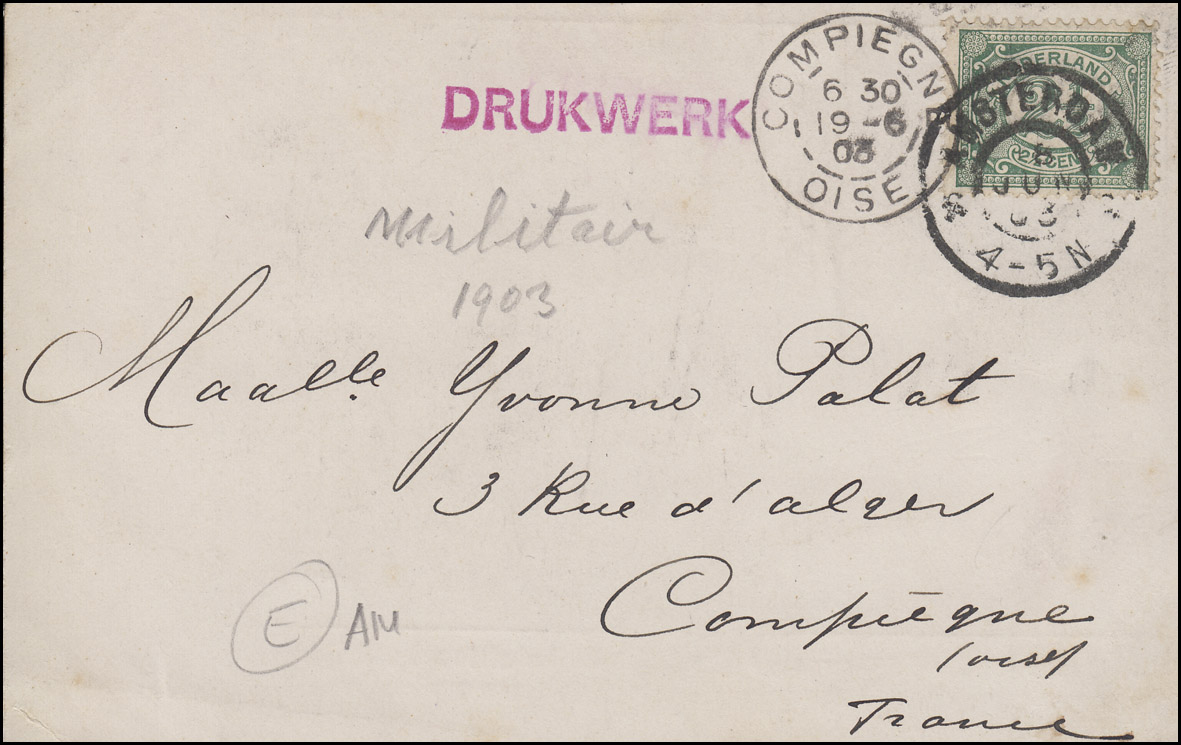 DRUKWERK
COMPIEGNE
6 30
19 -6
03
OISE
NEDERLAND
2½ CENT
AMSTERDAM
JUN
03
4-5N
Militair
1903
Maalle. Yvonne Palat
3 Rue d'alger
Compiègne
(oise)
France
E AM